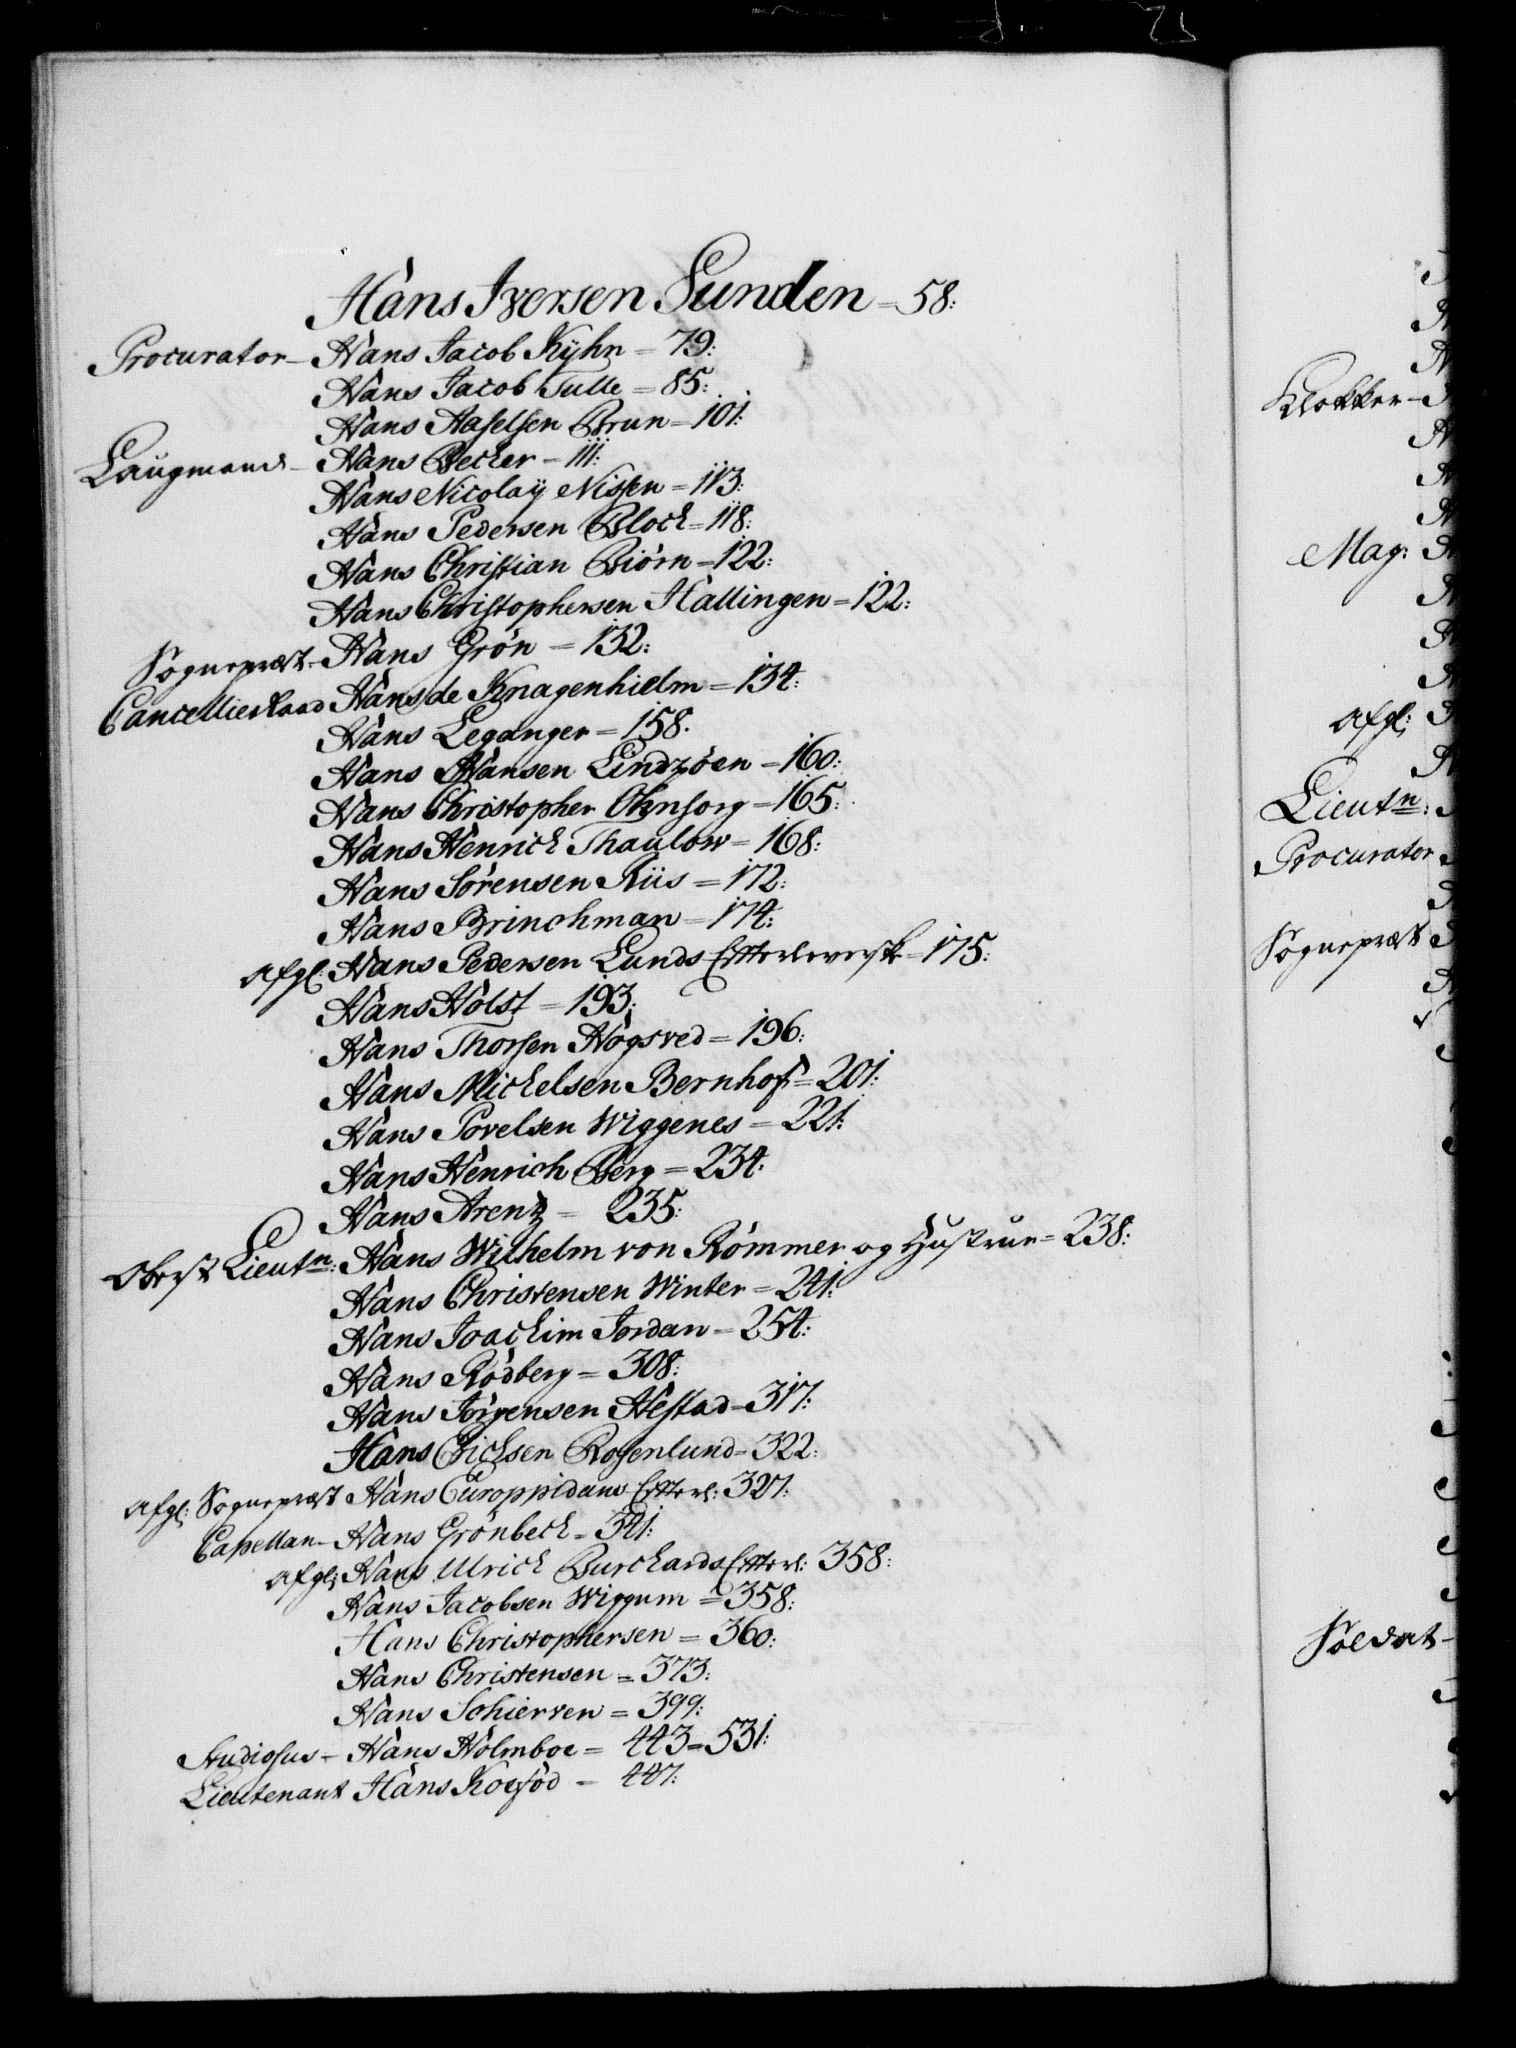 Hans Iversen Sunden = 58:
Procurator – Hans Jacob Kyhn = 79:
Hans Jacob Tulle = 85:
Hans Aaselsen Brun = 101:
Laugmand – Hans Becher = 111:
Hans Nicolaÿ Nissen = 113:
Hans Pedersen Bloch = 118:
Hans Christian Biörn = 122:
Hans Christophersen Hallingen = 122:
Sognepræst – Hans Grön = 132:
CancellieRaad Hans de Knagenhielm = 134:
Hans Leganger = 158.
Hans Hansen Lindzöen = 160:
Hans Christopher Ohnsorg = 165:
Hans Henrich Thaulow = 168:
Hans Sörensen Riis = 172:
Hans Brinchman = 174:
Afgl: Hans Pedersen Lunds Efterleverske = 175:
Hans Holst = 193:
Hans Thorsen Högsved = 196:
Hans Michelsen Bernhoft = 201:
Hans Povelsen Wiggenes = 221:
Hans Henrich Berg = 234:
Hans Arentz = 235:
Oberst Lieutn: Hans Wilhelm von Römmer og Hustrue = 238:
Hans Christensen Winter = 241:
Hans Joachim Jordan = 254:
Hans Rödberg = 308:
Hans Jörgensen Hestad = 317:
Hans Erichsen Rosenlund = 322:
Afgl: Sognepræst Hans Europpidans Efterl: 327:
Capellan – Hans Grönbech = 341:
Afgl: Hans Ulrich Burchards Efterl: 358:
Hans Jacobsen Wiggum = 358:
Hans Christophersen = 360:
Hans Christensen = 373:
Hans Schierven = 399:
Studiosus – Hans Holmboe = 443 = 531:
Lieutenant Hans Koefód = 447:
Klokker –
Mag:
Afgl:
Lieutn:
Procurator
Sognepræst
Soldat –